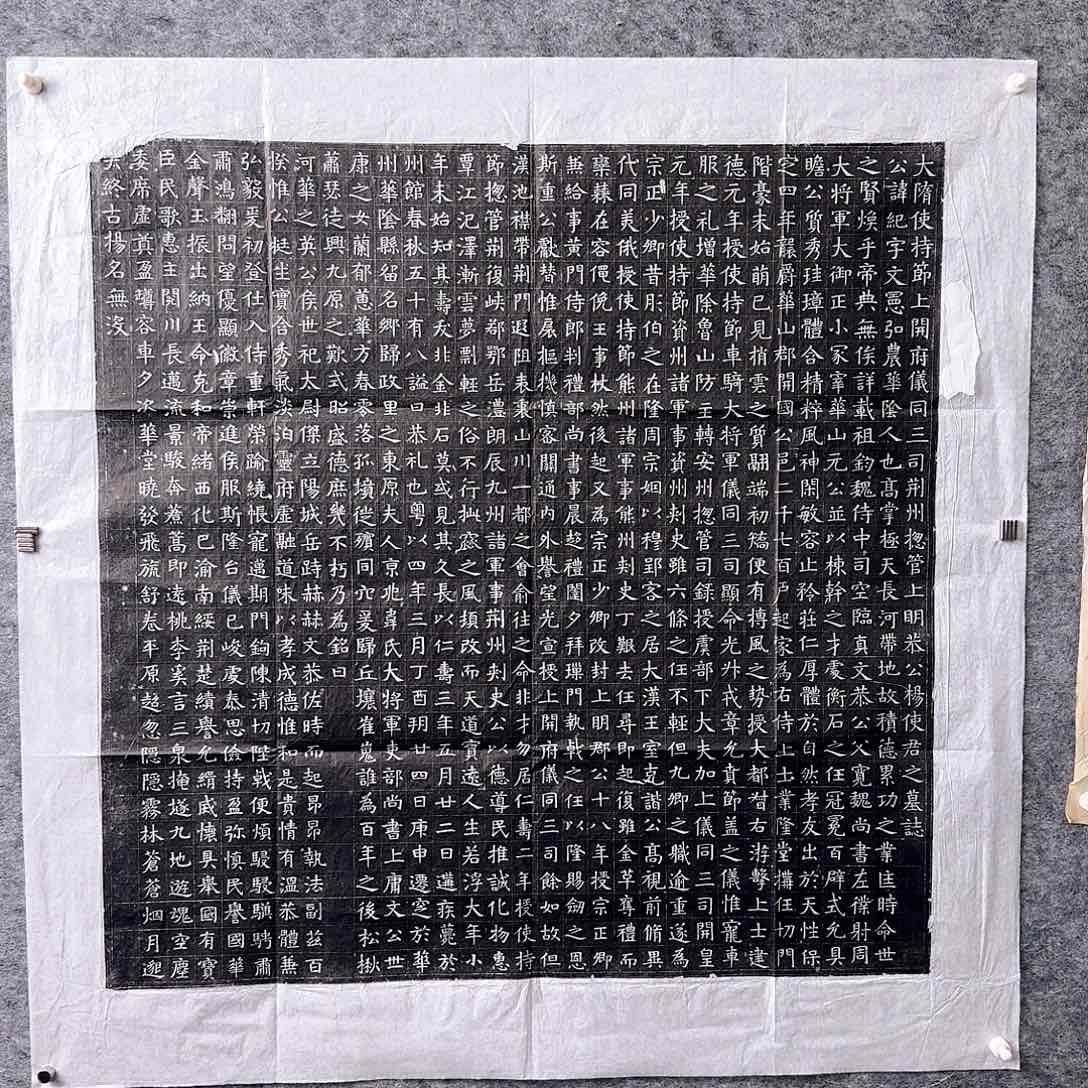 大隋使持節上開府儀同三司荆州揔管上明恭公楊使君之墓誌
公諱紀字文憲弘農華陰人也髙掌極天長河帶地故積德累功之業匡時命世
之賢煥乎帝典無俟詳載祖鈞魏侍中司空臨真文恭公父寬魏尚書左僕射周
大將軍大御正小冢宰華山元公並以棟幹之才處衡石之任冠冕百辟式允具
瞻公質秀珪璋體合精粹風神閑敏容止矜莊仁厚體於自然孝友出於天性保
定四年襲爵華山郡開國公邑二千七百户起家為右侍上士業隆堂搆任切門
階豪末始萌已見捎雲之質翮端初矯便有摶風之勢授大都督右游擊上士建
德元年授使持節車騎大将軍儀同三司顯命光升戎章允貴節盖之儀惟寵車
服之礼增華除魯山防主轉安州揔管司錄授虞部下大夫加上儀同三司開皇
元年授使持節資州諸軍事資州刾史雖六條之任不輕但九卿之職逾重遂為
宗正少卿昔彤伯之在隆周宗姻以穆郢客之居大漢王室克諧公髙視前脩異
代同美俄授使持節熊州諸軍事熊州刾史丁艱去任尋即起復雖金革奪禮而
欒蕀在容僶俛王事杖然後起又為宗正少卿改封上明郡公十八年授宗正卿
無給事黄門侍郎判禮部尚書事晨趍禮闈夕拜璅門執戟之任以隆賜劒之恩
斯重公獻替惟扆樞機慎密關通内外譽望光宣授上開府儀同三司餘如故但
漢池襟帶荆門遐阻表裏山川一都之會俞往之命非才勿居仁壽二年授使持
節揔管荆復峽郡鄂岳澧朗辰九州諸軍事荆州刾史公以德導民推誠化物惠
覃江汜澤漸雲夢剽輕之俗不行抝竊之風頓改而天道寘遠人生若浮大年小
年未始知其壽夭北金北石莫或見其久長以仁壽三年五月廿二日遘疾薨於
州館春秋五十有八謚曰恭礼也粤以四年三月丁酉朔廿四日庚申遷窆於華
州華陰縣留名鄉歸政里之東原夫人京兆韋氏大將軍吏部尚書上庸文公世
康之女蘭郁蕙華方春零落孤墳徙殯同穴爰歸丘壤崔嵬誰為百年之後松楸
蕭瑟徒興九原之歎式昭盛德庶幾不朽乃為銘曰
河華之英公侯世祀太尉傑立陽城岳跱赫赫文恭佐時而起昂昂執法副茲百
揆惟公挺生寔含秀氣淡泊靈府虛融道味以孝成德惟和是貴情有溫恭體兼
弘毅爰初登仕八侍重軒榮踰繞悵寵邁期門鉤陳清切陛戟便煩駸駸驥騁肅
肅鴻翻問望優顯徽章崇進侯服斯隆台儀已峻處泰思儉持盈弥慎民譽國華
金聲玉振出納王命克和帝緒西化巴渝南經荆楚績譽允緝威懷具舉國有寶
臣民歌惠主閱川長邁流景駿奔薤蒿即遠桃李奚言三泉掩㸂九地遊魂空塵
委席虛奠盈罇容車夕次華堂曉發飛旒舒卷平原超忽隱隱霧林蒼蒼烟月邈
矣終古揚名無沒